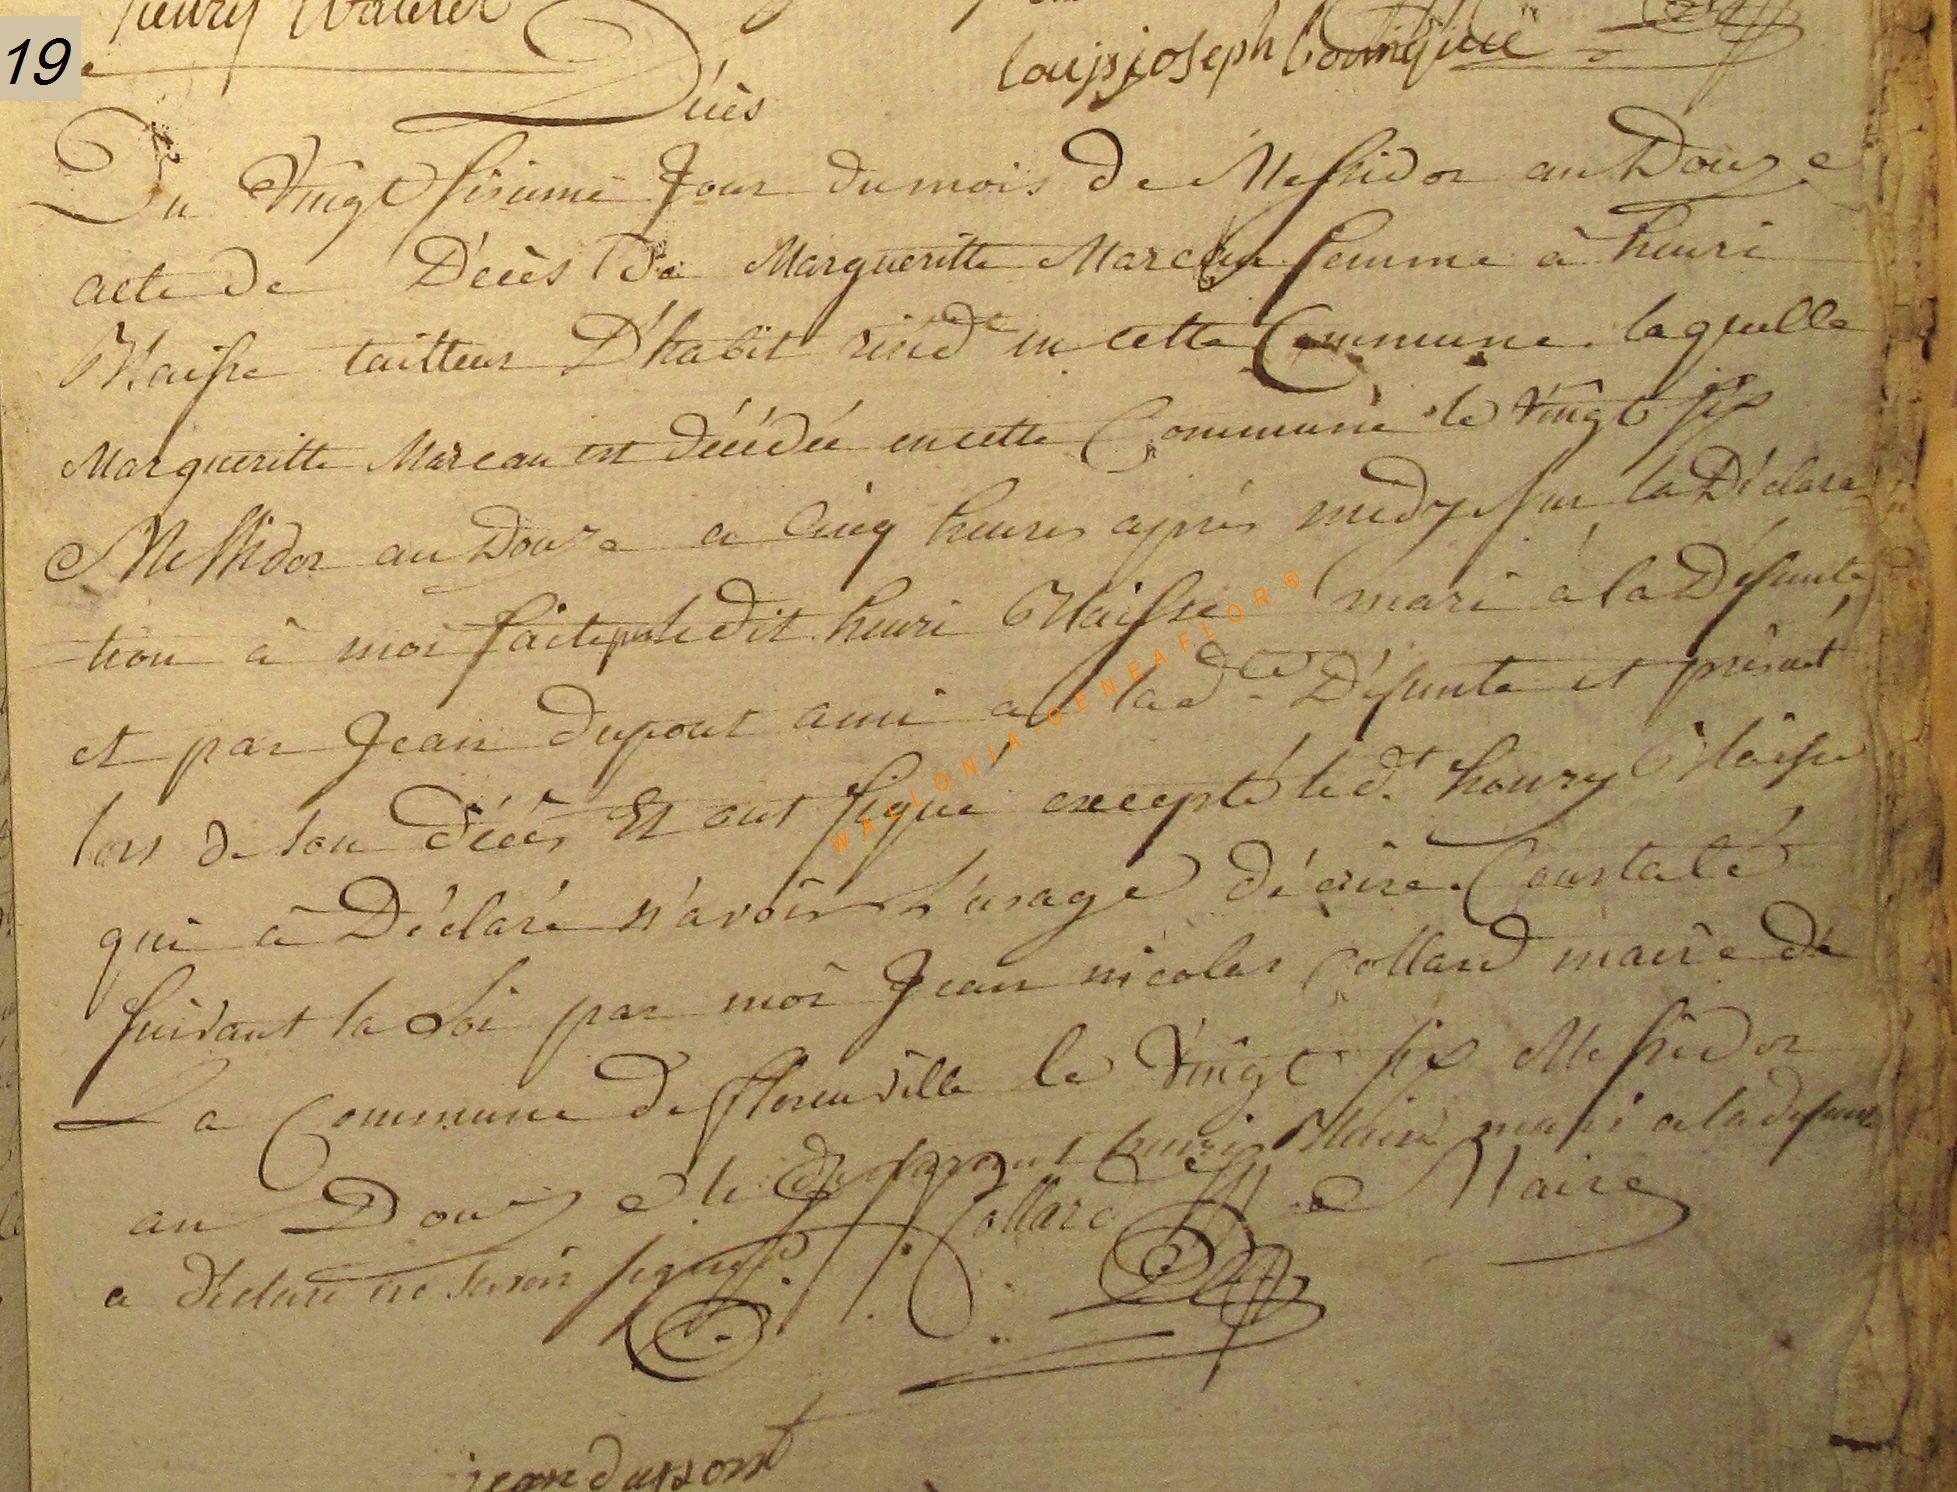 19
henry
louis joseph
Décès
Du Vingt sixieme Jour du mois de Messidor an Douze
acte de Décès de Margueritte Marcau femme à henri
Maisse tailleur D'habit résid.te en cette Commune laquelle
Margueritte Marcau est décédée en cette Commune le Vingt six
Messidor an Douze a Cinq heures après midy sur la Déclara
tion à moi faite par le dit henri Maisse mari à la Défunte
et par Jean dupont ami a la d.te Défunte et présent
lors de son décès Et ont signé excepté led.t henry Maisse
qui à Déclaré n'avoir L'usage d'écrire. Constaté
suivant la Loi par moi Jean nicolas Collard maire de
La Commune de florenville le Vingt six Messidor
an Douze le declarant henri Maisse mari a la defunte
a déclaré ne savoir signer
Collard Maire
jean dupont
WALLONIA GENEAFLOR®